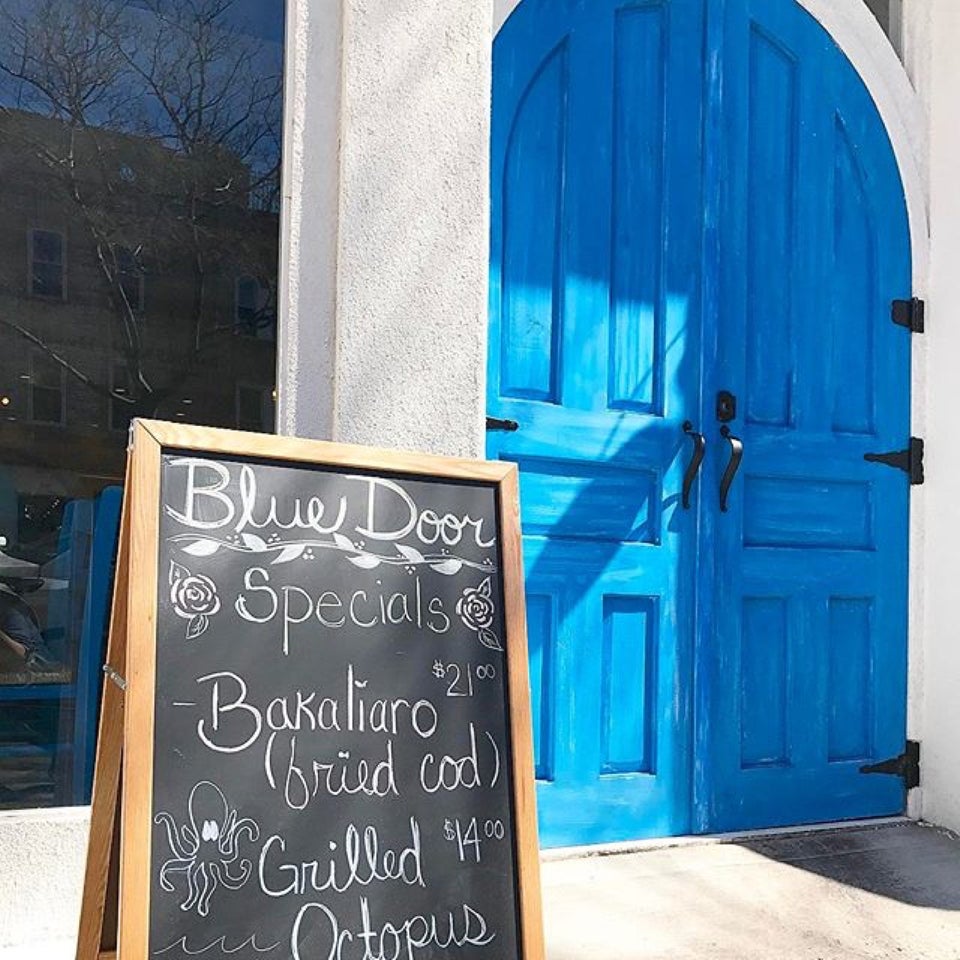 Blue Door
Specials
$21⁰⁰
- Bakaliaro
(fried cod)
$14⁰⁰
Grilled
Octopus